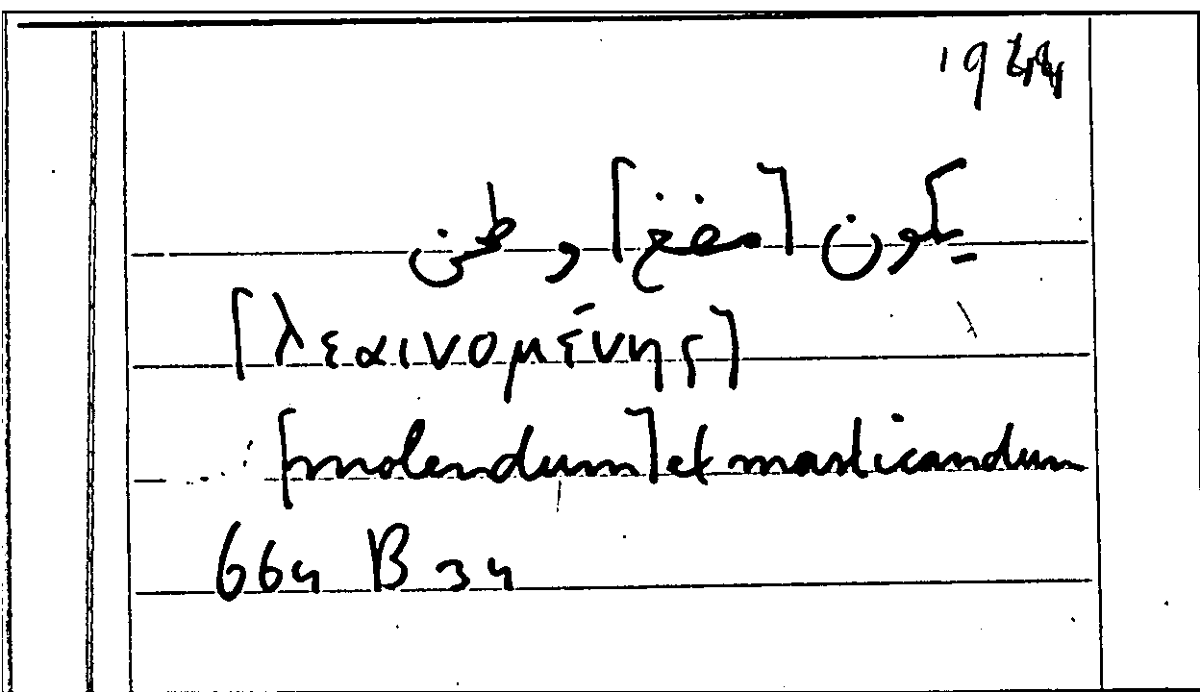 يكون [مضغ] وطحن
[λεαινομένης]
[molendum] et masticandum
664 B 34